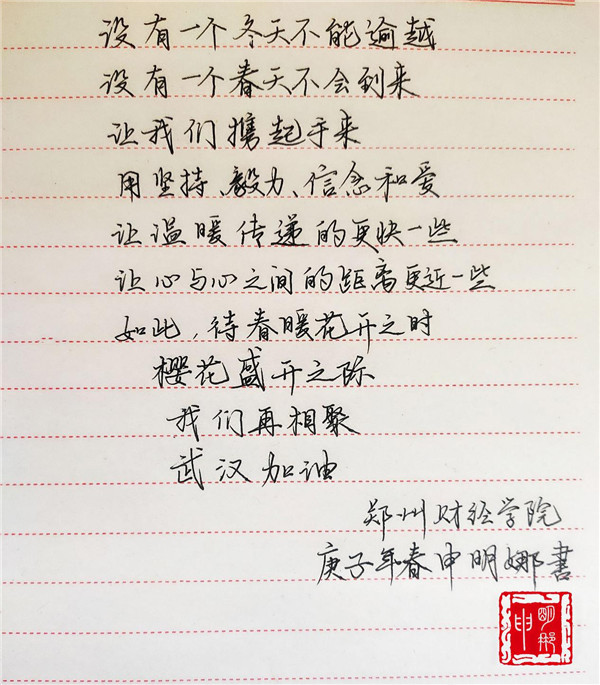 没有一个冬天不能逾越
没有一个春天不会到来
让我们携起手来
用坚持、毅力、信念和爱
让温暖传递的更快一些
让心与心之间的距离更近一些
如此，待春暖花开之时
樱花盛开之际
我们再相聚
武汉加油
郑州财经学院
庚子年春申明娜書
申明娜